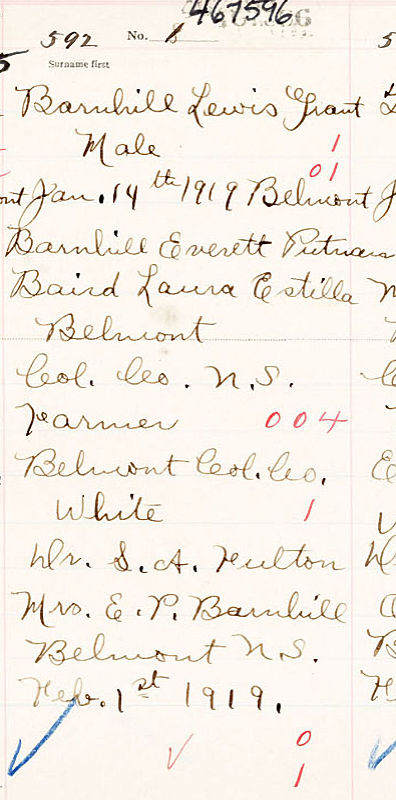 467596
592 No. 1
Surname first
Barnhill Lewis Grant
Male 1
01
Jan. 14th 1919 Belmont
Barnhill Everett Putnam
Baird Laura Estilla
Belmont
Col. Co. N.S.
Farmer 004
Belmont Col. Co.
White 1
Dr. S. A. Fulton
Mrs. E. P. Barnhill
Belmont N.S.
Feb. 1st 1919.
0
1